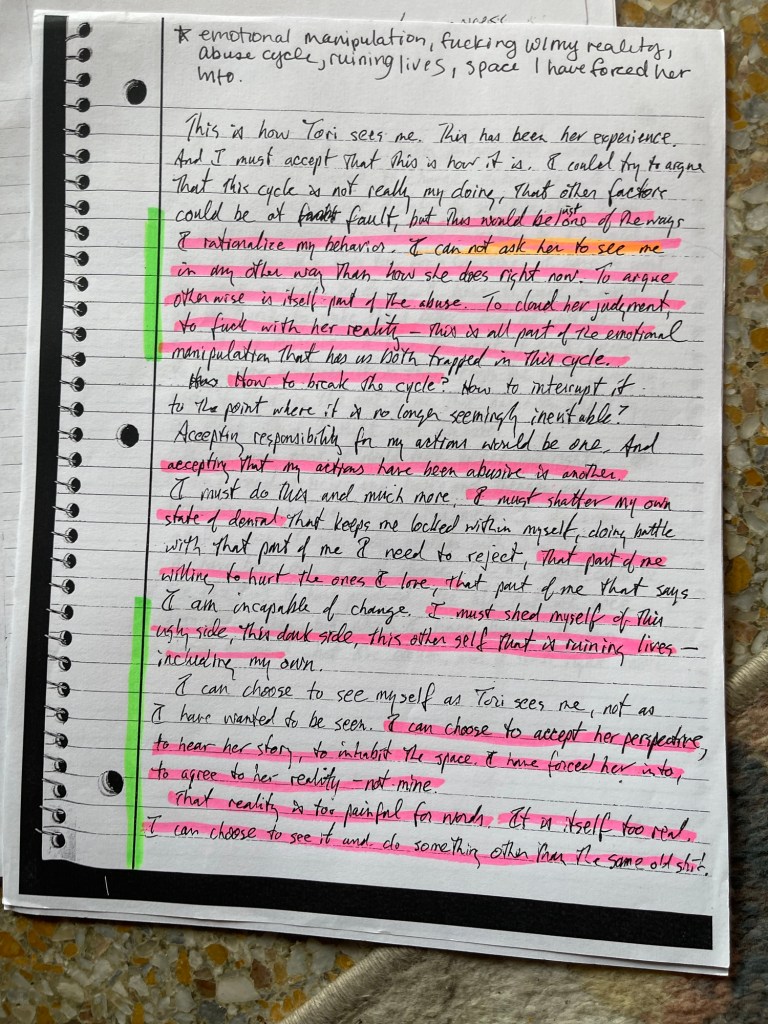 * emotional manipulation, fucking w/ my reality,
abuse cycle, ruining lives, space I have forced her
into.
This is how Tori sees me. This has been her experience.
And I must accept that this is how it is. I could try to argue
that this cycle is not really my doing, that other factors
could be at fault, but this would be just one of the ways
I rationalize my behavior. I can not ask her to see me
in any other way than how she does right now. To argue
otherwise is itself part of the abuse. To cloud her judgment,
to fuck with her reality – this is all part of the emotional
manipulation that has us both trapped in this cycle.
How to break the cycle? How to interrupt it
to the point where it is no longer seemingly inevitable?
Accepting responsibility for my actions would be one. And
accepting that my actions have been abusive is another.
I must do this and much more. I must shatter my own
state of denial that keeps me locked within myself, doing battle
with that part of me I need to reject, that part of me
willing to hurt the ones I love, that part of me that says
I am incapable of change. I must shed myself of this
ugly side, this dark side, this other self that is ruining lives –
including my own.
I can choose to see myself as Tori sees me, not as
I have wanted to be seen. I can choose to accept her perspective,
to hear her story, to inhabit the space I have forced her into,
to agree to her reality – not mine.
That reality is too painful for words. It is itself too real.
I can choose to see it and do something other than the same old shit.